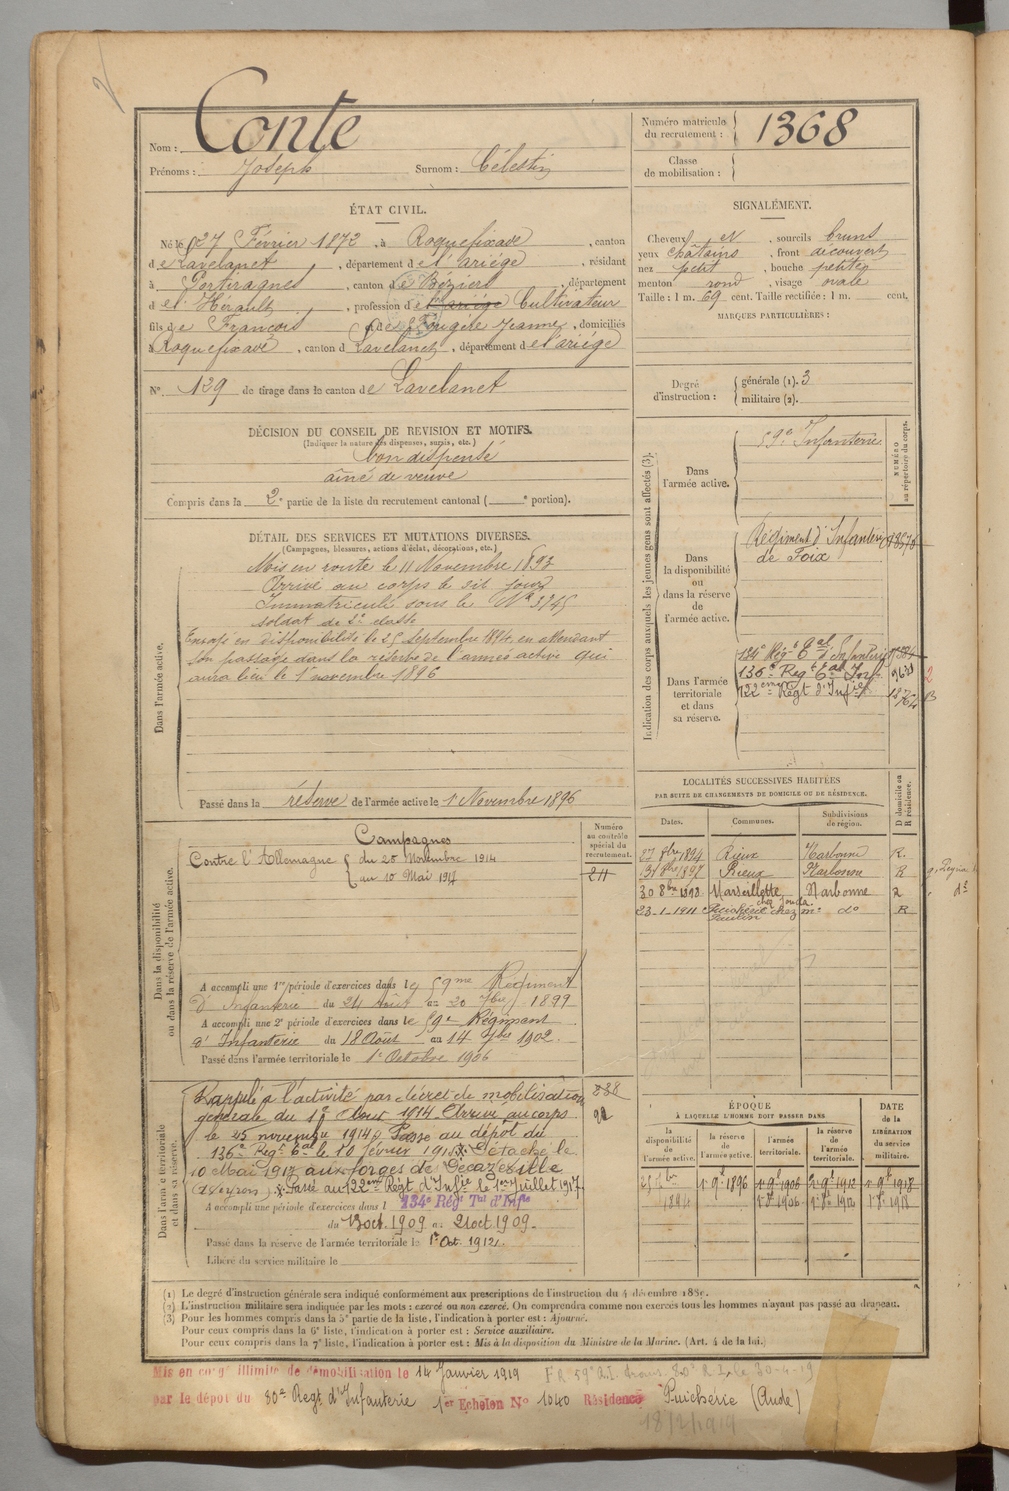 Nom : Conte
Prénoms : Joseph Surnom : Célestin
Numéro matricule du recrutement : 1368
Classe de mobilisation :
ÉTAT CIVIL.
Né le 27 Février 1872, à Roquefixade, canton
de Lavelanet, département de l'ariége, résidant
à Portiragnes, canton de Béziers, département
de l'Hérault, profession de l'ariége Cultivateur
fils de François et de Fougère Jeanne, domiciliés
à Roquefixade, canton de Lavelanet, département de l'ariége
N° 129 de tirage dans le canton de Lavelanet
SIGNALÉMENT.
Cheveux et, sourcils bruns
yeux châtains, front découvert
nez petit, bouche petite
menton rond, visage ovale
Taille : 1 m. 69 cent. Taille rectifiée : 1 m. cent,
MARQUES PARTICULIÈRES :
Degré d'instruction : générale (1). 3
militaire (2).
DÉCISION DU CONSEIL DE REVISION ET MOTIFS.
(Indiquer la nature des dispenses, sursis, etc.)
bon dispensé
aîné de veuve
Compris dans la 2e partie de la liste du recrutement cantonal ( e portion).
DÉTAIL DES SERVICES ET MUTATIONS DIVERSES.
(Campagnes, blessures, actions d'éclat, décorations, etc.)
Dans l'armée active.
Mis en route le 11 Novembre 1893
Arrivé au corps le dit jour
Immatriculé sous le N° 3745
soldat de 2e classe
Envoyé en disponibilité le 25 Septembre 1894, en attendant
son passage dans la réserve de l'armée active qui
aura lieu le 1er novembre 1896
Passé dans la réserve de l'armée active le 1er Novembre 1896
Indication des corps auxquels les jeunes gens sont affectés (3).
NUMÉRO au répertoire du corps.
Dans l'armée active.
59e Infanterie
Dans la disponibilité ou dans la réserve de l'armée active.
Régiment d'Infanterie
de Foix
Dans l'armée territoriale et dans sa réserve.
134e Régt tal d'Infanterie
136e Régt tal Inf.
122eme Régt d'Infie
LOCALITÉS SUCCESSIVES HABITÉES
PAR SUITE DE CHANGEMENTS DE DOMICILE OU DE RÉSIDENCE.
Dates. Communes. Subdivisions de région. D domicile ou R résidence.
27 8bre 1894 Rieux Narbonne R.
31 8bre 1897 Rieux Narbonne R
30 8bre Marseillette Narbonne
23-1-1911 Puichéric chez do R
Dans la disponibilité ou dans la réserve de l'armée active.
Numéro au contrôle spécial du recrutement.
Campagnes
Contre l'Allemagne du 25 Novembre 1914
au 10 Mai 1917
A accompli une 1re période d'exercices dans le 59me Régiment
d'Infanterie du 24 Août au 20 7bre 1899
A accompli une 2e période d'exercices dans le 59e Régiment
d'Infanterie du 18 Août au 14 7bre 1902.
Passé dans l'armée territoriale le 1er Octobre 1906
Dans l'armée territoriale et dans sa réserve.
Rappelé à l'activité par décret de mobilisation
générale du 1er Aout 1914 Arrivé au corps
le 25 novembre 1914. Passé au dépôt du
136e Régt tal le 10 février 1915. Détaché le
10 Mai 1917 aux forges de Decazeville
(Aveyron). Passé au 122eme Régt d'Infie le 1er Juillet 1917
A accompli une période d'exercices dans l 134e Régt Tal d'Infie
du 13 oct. 1909 au 21 oct 1909.
Passé dans la réserve de l'armée territoriale le 1er Oct. 1912.
Libéré du service militaire le
ÉPOQUE
À LAQUELLE L'HOMME DOIT PASSER DANS
DATE de la LIBÉRATION du service militaire.
la disponibilité de l'armée active. la réserve de l'armée active. l'armée territoriale. la réserve de l'armée territoriale.
1894
(1) Le degré d'instruction générale sera indiqué conformément aux prescriptions de l'instruction du 4 décembre 1889.
(2) L'instruction militaire sera indiquée par les mots : exercé ou non exercé. On comprendra comme non exercés tous les hommes n'ayant pas passé au drapeau.
(3) Pour les hommes compris dans la 5e partie de la liste, l'indication à porter est : Ajourné.
Pour ceux compris dans la 6e liste, l'indication à porter est : Service auxiliaire.
Pour ceux compris dans la 7e liste, l'indication à porter est : Mis à la disposition du Ministre de la Marine. (Art. 4 de la loi.)
Mis en congé illimité de démobilisation le 14 Janvier 1919
par le dépôt du 80e Régt d'Infanterie 1er Echelon N° 1040 Résidence Puichéric (Aude)
18/2/1919